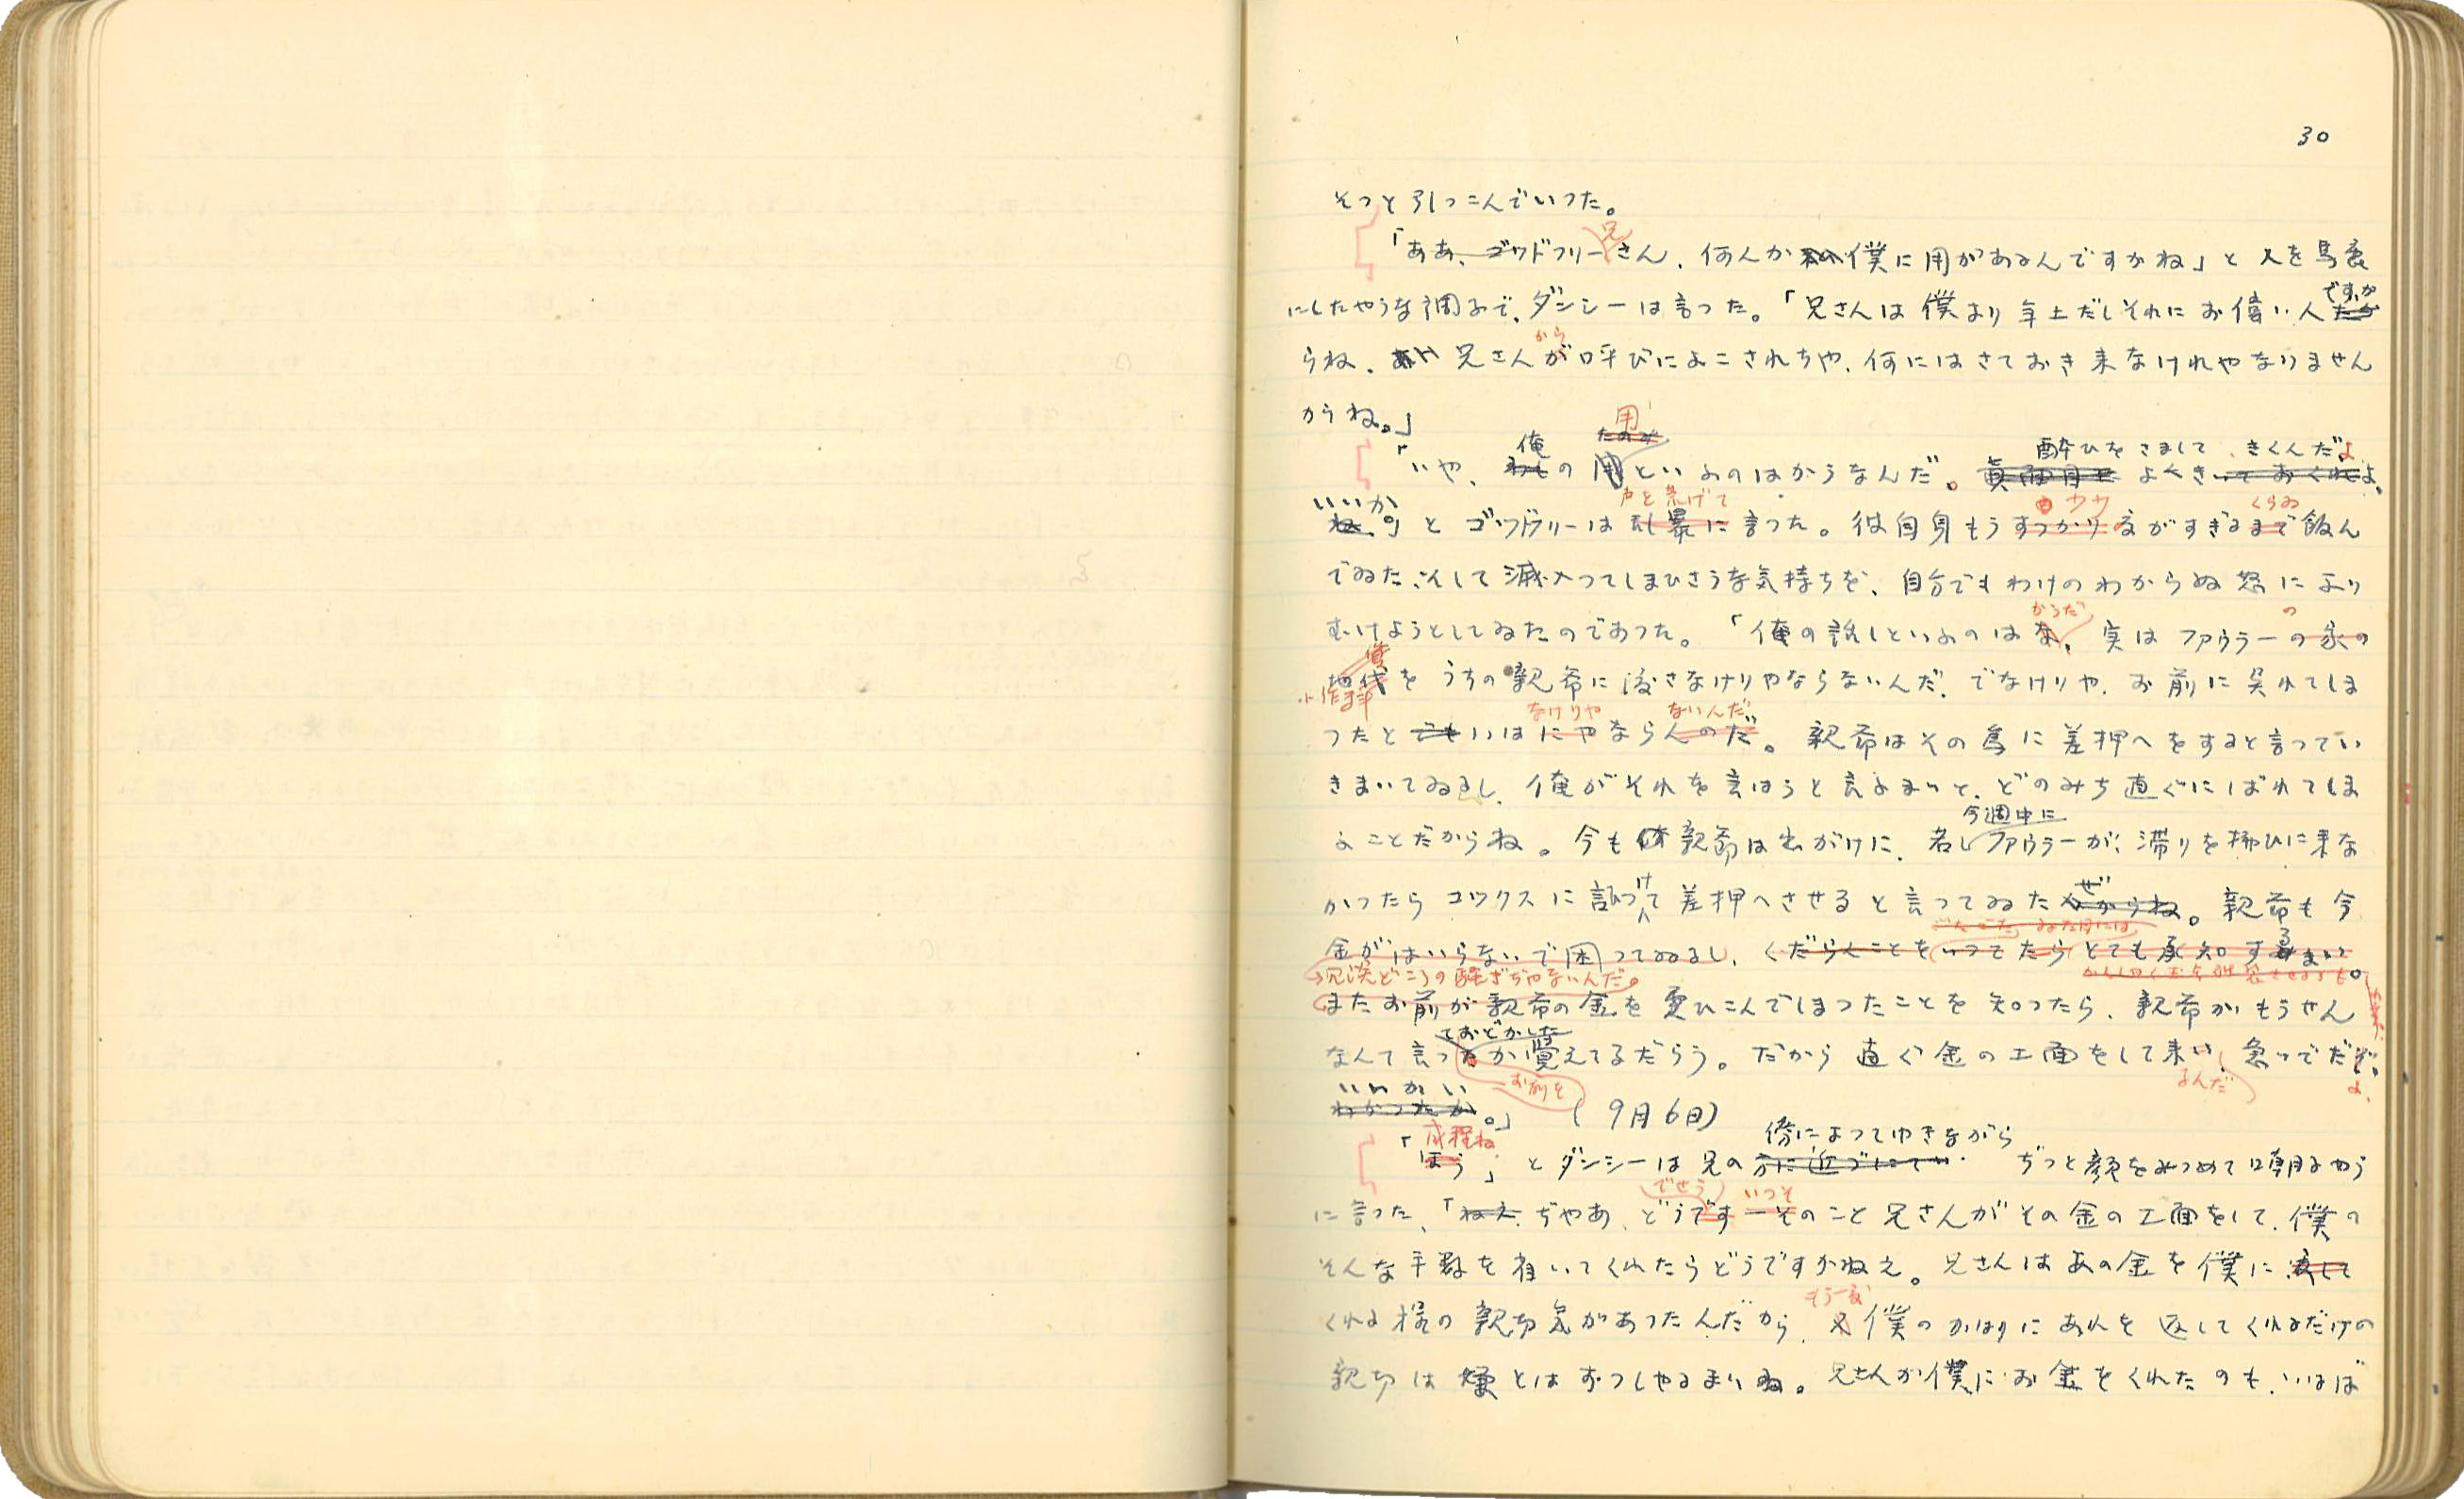 30
そつと引つこんでいつた。
兄
「ああ、ゴツドフリーさん、何んか僕に用があるんですかね」と人を馬鹿
ですか
にしたやうな調子で、ダンシーは言つた。「兄さんは僕より年上だしそれにお偉い人だか
から
らね、兄さんが呼びによこされちや、何にはさておき来なけれやなりません
からね。」
用
俺 たのみ 酔ひをさまして、きくんだよ
「いや、わしの用といふのはかうなんだ。真面目によくきいておくれよ、
いいか 声を荒げて くらゐ
ね。」とゴツドフリーは乱暴に言つた。彼自身もうすつかり度がすぎるまで飲ん
でゐた、そして滅入つてしまひさうな気持ちを、自分でもわけのわからぬ怒により
かうだ の
むけようとしてゐたのであつた。「俺の話しといふのはな、実はファウラーの家の
賃
地代をうちの親爺に渡さなけりやならないんだ、でなけりや、お前に呉れてしま
小作料
なけりや ないんだ
つたとでもいはにやならんのだ。親爺はその為に差押へをすると言つてい
きまいてゐるし、俺がそれを言はうと言ふまいと、どのみち直ぐにばれてしま
今週中に
ふことだからね。今も親爺は出がけに、若しファウラーが、滞りを払ひに来な
け ぜ
かつたらコックスに訴へて差押へさせると言つてゐたからね。親爺も今
金がはいらないで困つてゐるし、くだらんことをいつてたらとても承知するまい。
冗談どころの騒ぎぢやないんだ。
またお前が親爺の金を使ひこんでしまつたことを知つたら、親爺がもうせん
ておどかした
なんて言つたか覚えてるだらう。だから直ぐ金の工面をして来い、急いでだぞ、
お前を るんだ よ、
いいかい
わかつたか。」 (9月6日)
成程ね 傍によつてゆきながら
「ほう」とダンシーは兄の方に近づいてぢつと顔をみつめて嘲るやう
でせう いつそ
に言つた、「ねえ、ぢやあ、どうです一そのこと兄さんがその金の工面をして、僕の
そんな手数を省いてくれたらどうですかねえ。兄さんはあの金を僕に渡して
もう一度
くれる程の親切気があつたんだから、又僕のかはりにあれを返してくれるだけの
親切は嫌とはおつしやるまいね。兄さんが僕にお金をくれたのも、いはば